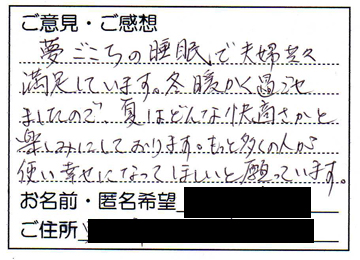 ご意見・ご感想
夢ごこちの睡眠で夫婦共々
満足しています。冬暖かく過ごせ
ましたので 夏はどんな快適さかと
楽しみにしております。もっと多くの人が
使い幸せになってほしいと願っています。
お名前・匿名希望
ご住所